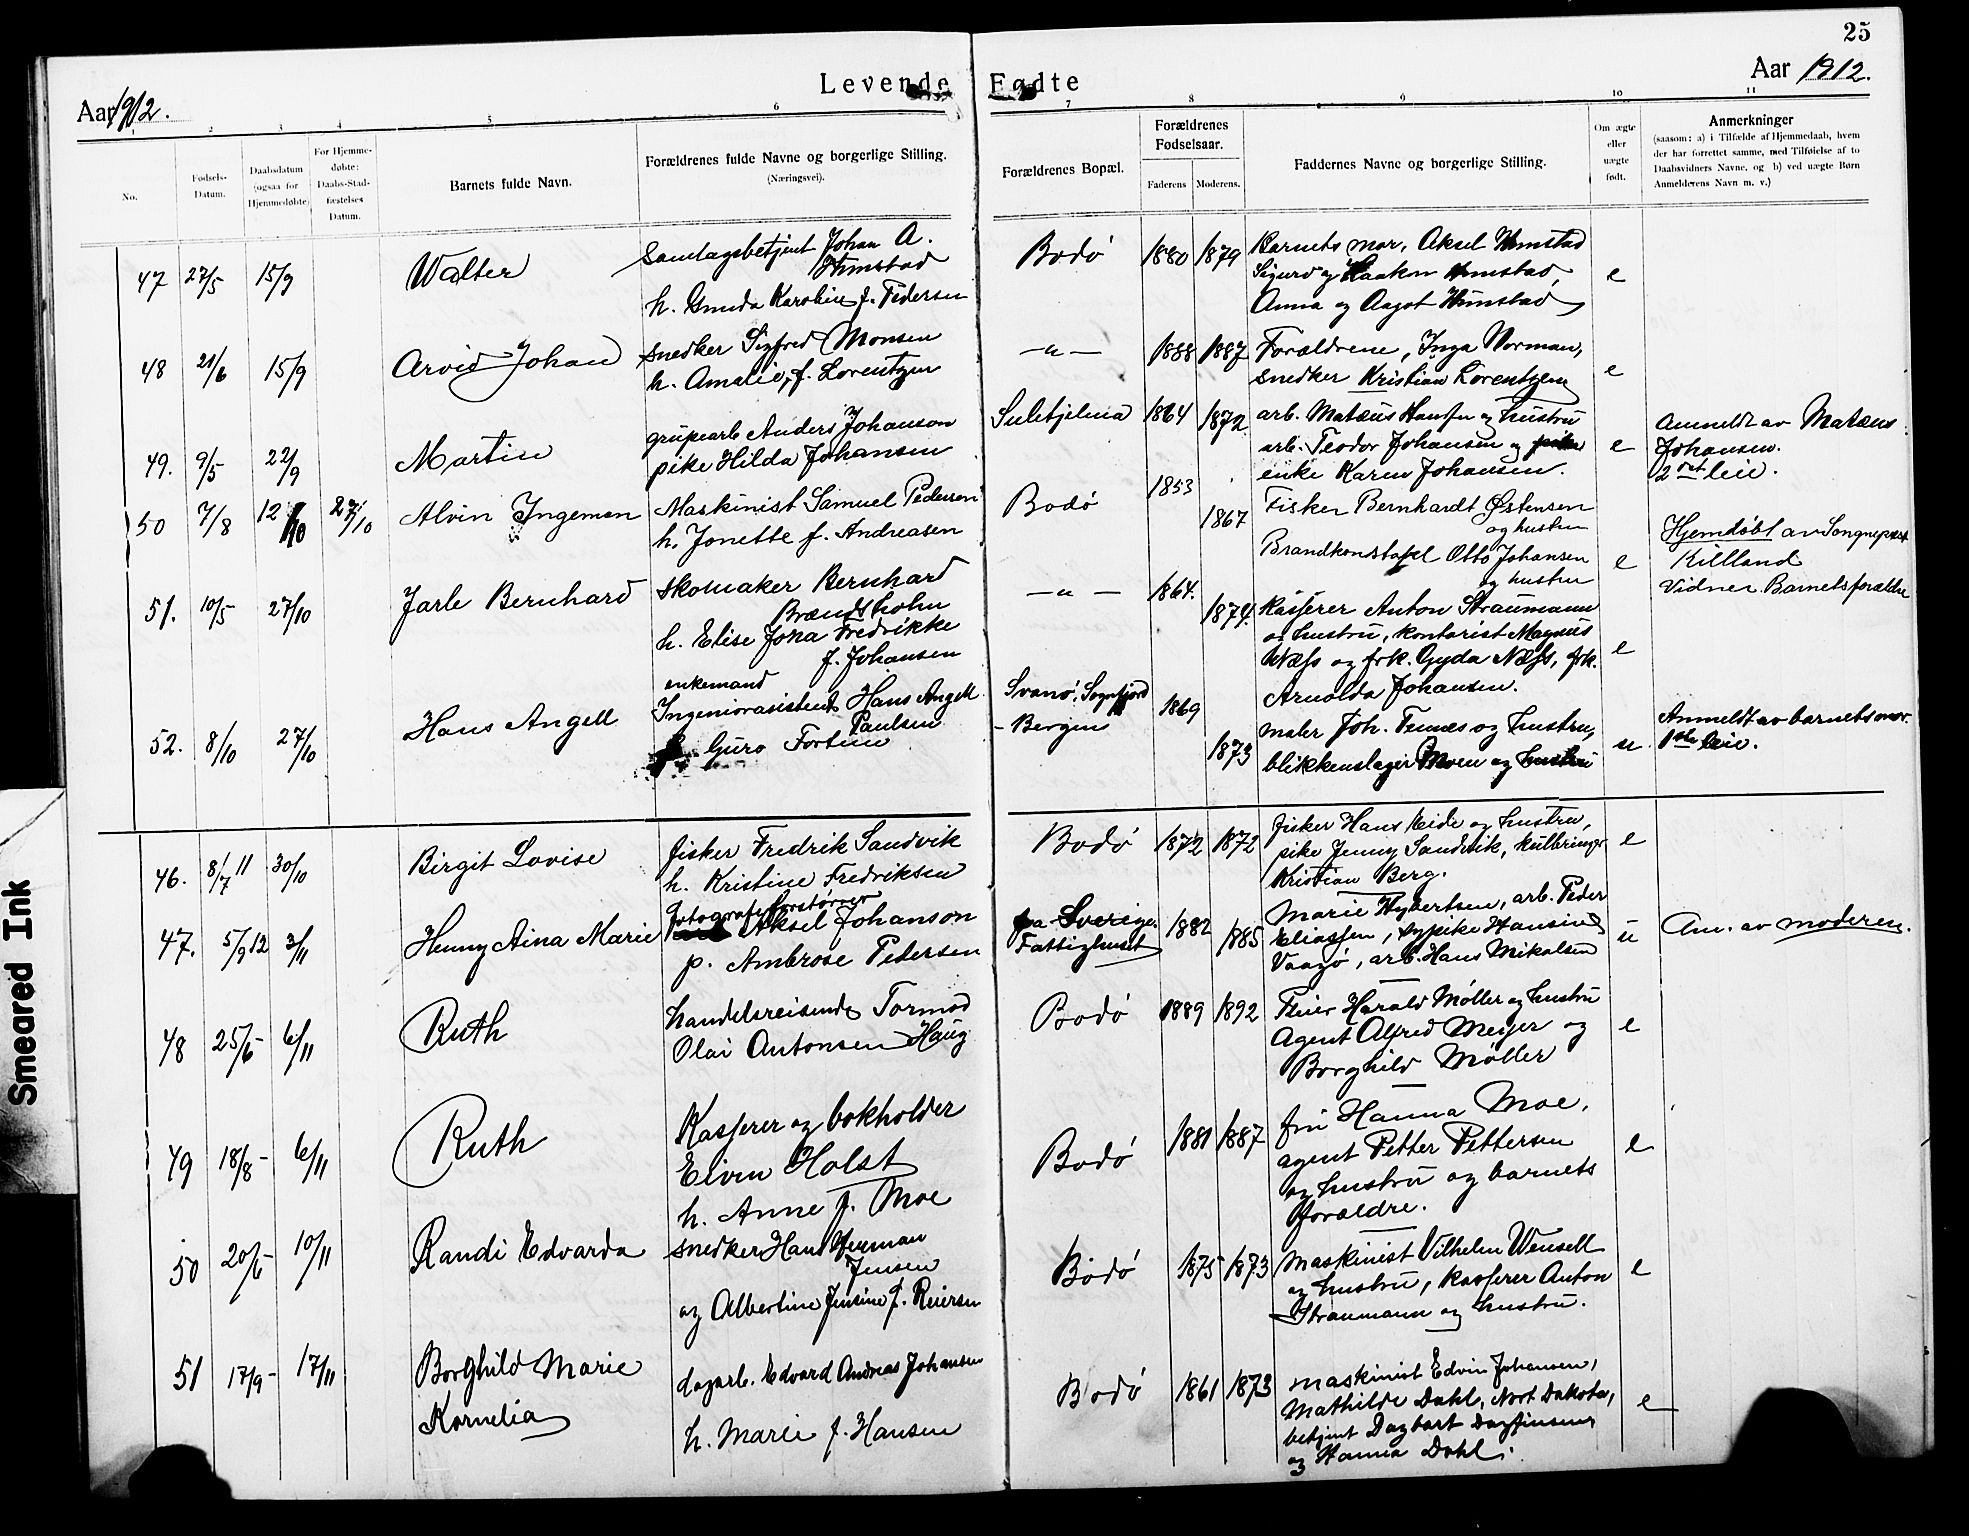 25
Levende Fødte
Aar 1912.
Aar 1912.
1 2 3 4 5 6 7 8 9 10 11
No.
Fødsels-
Datum.
Daabsdatum
(ogsaa for
Hjemmedøbte)
For Hjemme-
døbte:
Daabs-Stad-
fæstelses
Datum.
Barnets fulde Navn.
Forældrenes fulde Navne og borgerlige Stilling.
(Næringsvei).
Forældrenes Bopæl.
Forældrenes
Fødselsaar.
Faderens Moderens.
Faddernes Navne og borgerlige Stilling.
Om ægte
eller
uægte
født.
Anmerkninger
(saasom: a) i Tilfælde af Hjemmedaab, hvem
der har forrettet samme, med Tilføielse af to
Daabsvidners Navne, og b) ved uægte Børn
Anmelderens Navn m. v.)
47 27/5 15/9 Walter
Johan A.
Himstad
h. Karoline f. Pedersen
Bodø 1880 1879
Barnets mor, Aksel Himstad
Sigurd og Haakon Himstad
Anna og Aagot Himstad
e
48 21/6 15/9 Arvid Johan
snedker Sigfred Monsen
h. Amalie, f. Lorentzen
—"— 1888 1887
Forældrene, Inga Norman,
snedker Kristian Lorentzen
e
49. 9/5 22/9 Martin
grupearb Anders Johanson
pike Hilda Johansen
Sulitjelma 1864 1872
arb. Matæus Hansen og hustru
arb. Teodor Johansen og
enke Karen Johansen.
e
Anmeldt av Matæus
Johansen.
2det leie.
50 7/8 12/10 27/10 Alvin Ingeman
Maskinist Samuel Pedersen
h. Jonette f. Andreasen
Bodø 1853 1867
Fisker Bernhardt Østensen
og hustru
Brandkonstabel Otto Johansen
og hustru
e
Hjemdøbt av Sogneprest
Killand
Vidner. Barnets forældre
51. 10/5 27/10 Jarle Bernhard
skomaker Bernhard
Brændsholm
h. Elise Jona Fredrikke
f. Johansen
—"— 1864. 1874.
Kasserer Anton Straumann
og hustru, kontorist Magnus
Næss og frk. Gyda Næss, frk.
Arnolda Johansen.
e
52. 8/10 27/10 Hans Angell
enkemand
Ingeniørasistent Hans Angell
Paulsen
Guro Fortun
Svanø, Sognfjord
- Bergen
1869 1873
maler Joh. Tennes og hustru,
blikkenslager Moen og hustru
u
Anmeldt av barnets mor.
1ste leie.
46. 8/7 11 30/10 Birgit Lovise
fisker Fredrik Sandvik
h. Kristine Fredriksen
Bodø 1872 1872
fisker Hans Eide og hustru,
pike Jenny Sandvik, kulbringer
Kristian Berg.
e
47. 5/9 12 3/11 Henny Aina Marie
fotografiforstørrer
Aksel Johanson
p. Ambrose Pedersen
fra Sverige.
Fattighuset
1882 1885
Marie Hybertsen, arb. Peder
Eliassen, sypike Hansine
Vaagø, arb. Hans Mikalsen
u
Am. av moderen.
48 25/6- 6/11 Ruth
handelsreisende Tormod
Olai Antonsen Haug
Bodø 1889 1892
Feier Harald Møller og hustru
Agent Alfred Meyer og
Borghild Møller
e
49 18/8- 6/11 Ruth
Kasserer og bokholder
Elvin Holst
h. Anne f. Moe
Bodø 1881 1887
fru Hanna Moe,
agent Petter Pettersen
og hustru og barnets
forældre.
e
50 20/6- 10/11 Randi Edvarda
snedker Hans Herman
Jensen
og Albertine Jensine f. Reiersen
Bodø 1875 1873
Maskinist Vilhelm Wensell
og hustru, kasserer Anton
Straumann og hustru.
e
51 17/9- 17/11 Borghild Marie
Kornelia
dagarb. Edvard Andreas Johansen
h. Marie f. Hansen
Bodø 1861 1873
maskinist Edvin Johansen,
Mathilde Dahl, Nort Dakota,
betjent Dagbart Dagfinsen
og Hanna Dahl.
e
Smeared Ink